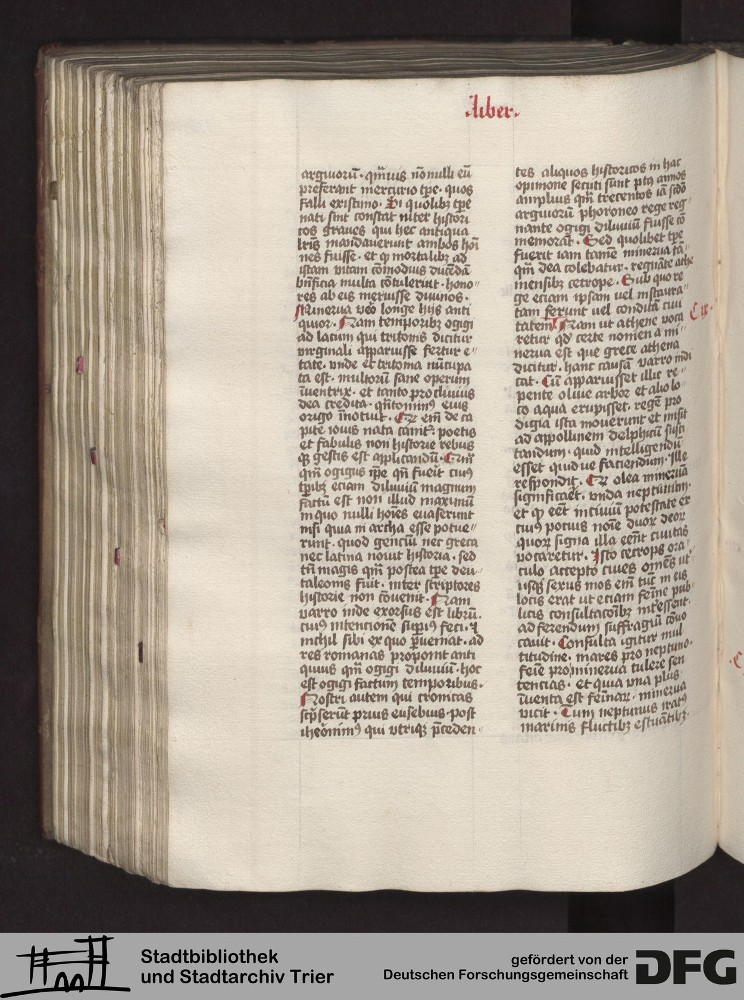 liber
argiuorū · qͣmuis nōnulli eū
preferant mercurio tpe · quos
falli existimo · Si quolibꝫ tpe
nati sint constat inter histori
cos graues qui hec antiqua
lr̄is mandauerunt ambos hoī
nes fuisse · et ꝙ mortalibꝫ ad
istam uitam cōmodius ducēdā
bn̄ficia multa cōtulerūt · hono〃
res ab eis meruisse diuinos ·
Minerua ūo longe hijs anti
quior · Nam temporibꝫ ogigi
ad lacum qui tritonis dicitur
uirginali apparuisse fertur e〃
tate · vnde et tritonia nūcupa
ta est · multorū sane operum
īuentrix · et tanto procliuius
dea credita · qn̄tominꝰ eius
origo īnotuit · Qꝫ em̄ de ca
pite iouis nata canit̄ · poetis
et fabulis non historie rebus
qꝫ gestis est applicandū · Cumꝙ
qm̄ ogigus ip̄e qn̄ fuerit cuiꝰ
tp̄ibꝫ eciam diluuiū magnum
factū est non illud maximū
in quo nulli hoīes euaserunt
nisi qui in archa esse potue〃
runt · quod genciū nec greca
nec latina nouit historia · sed
tn̄ magis qm̄ postea tpe deu〃
talconis fuit · inter scriptores
historie non cōuenit · Nam
varro inde exorsus est librū ·
cuiꝰ intencionē supiꝰ feci · ⁊
nichil sibi ex quo ꝑueniat · ad
res romanas proponit anti
quius qm̄ ogigi diluuiū · hoc
est ogigi factum temporibus ·
Nostri autem qui cronicas
scp̄serūt prius eusebius · post
iheronimꝰ qui vtriqꝫ p̄ceden〃
tes aliquos historicos in hac
opinione secuti sūnt plꝰ annos
amplius qm̄ trecentos iā scd̄o
argiuorū phoroneo rege reg〃
nante ogigi diluuiū fuisse cō
memorāt · Sed quolibet tpe
fuerit iam tamē minerua tā〃
qm̄ dea colebatur · regnāte athe
niensibꝫ cecrope · Sub quo re
ge eciam ipsam uel instaura〃
tam ferunt uel conditā ciui
tatem Nam ut athene voca
C ix ·
retur qd̄ certe nomen a mi〃
nerua est que grece athena
dicitur · hanc causā varro indi
cat · Cū apparuisset illic re〃
pente oliue arbor et alio lo〃
co aqua erupisset · regē pro
digia ista mouerunt et misit
ad appollinem delphicū sisci
tandum · quid intelligendū
esset quidue faciendum · Ille
respondit · Qꝫ olea mineruā
significaret · vnda neptunum ·
et ꝙ eēt in ciuiū potestate ex
cuiꝰ pocius noīe duoꝝ deoꝝ
quoꝝ signa illa eēnt ciuitas
vocaretur · Isto cecrops ora〃
culo accepto ciues omēs ut〃
usqꝫ sexus mos em̄ tūc in eis
locis erat ut eciam feīne pub〃
licis consultacōibꝫ īntēssent ·
ad ferendum suffragiū cōuo
cauit · Consulta igitur mul
titudine · mares pro neptuno ·
feīe pro minerua tulere sen
tencias · et quia vna plus
īuenta est feīnaꝝ · minerua
vicit · Cum neptunus iratꝰ
marinis fluctibꝫ estuātibꝫ ·
Stadtbibliothek
und Stadtarchiv Trier
gefördert von der
Deutschen Forschungsgemeinschaft
DFG